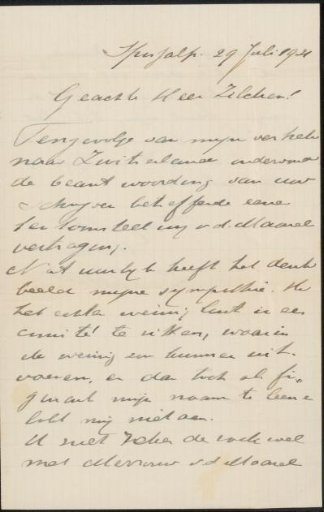 29 Juli 1921
Geachte Heer Zilcken!
Tengevolge van mijn vertrek
naar Zwitserland onderving
de beantwoording van uw
schrijven betreffende eene
tentoonstelling v d Maarel
vertraging.
Natuurlijk heeft het denk
beeld mijne sympathie.
het echter weinig lust in een
comité te zitten, waarin
de weinig en kunnen uit
voeren, en dan toch als fi,
gurant mijn naam te leenen
lokt mij niet aan.
U zult zeker de zaak wel
met Mevrouw v d Maarel